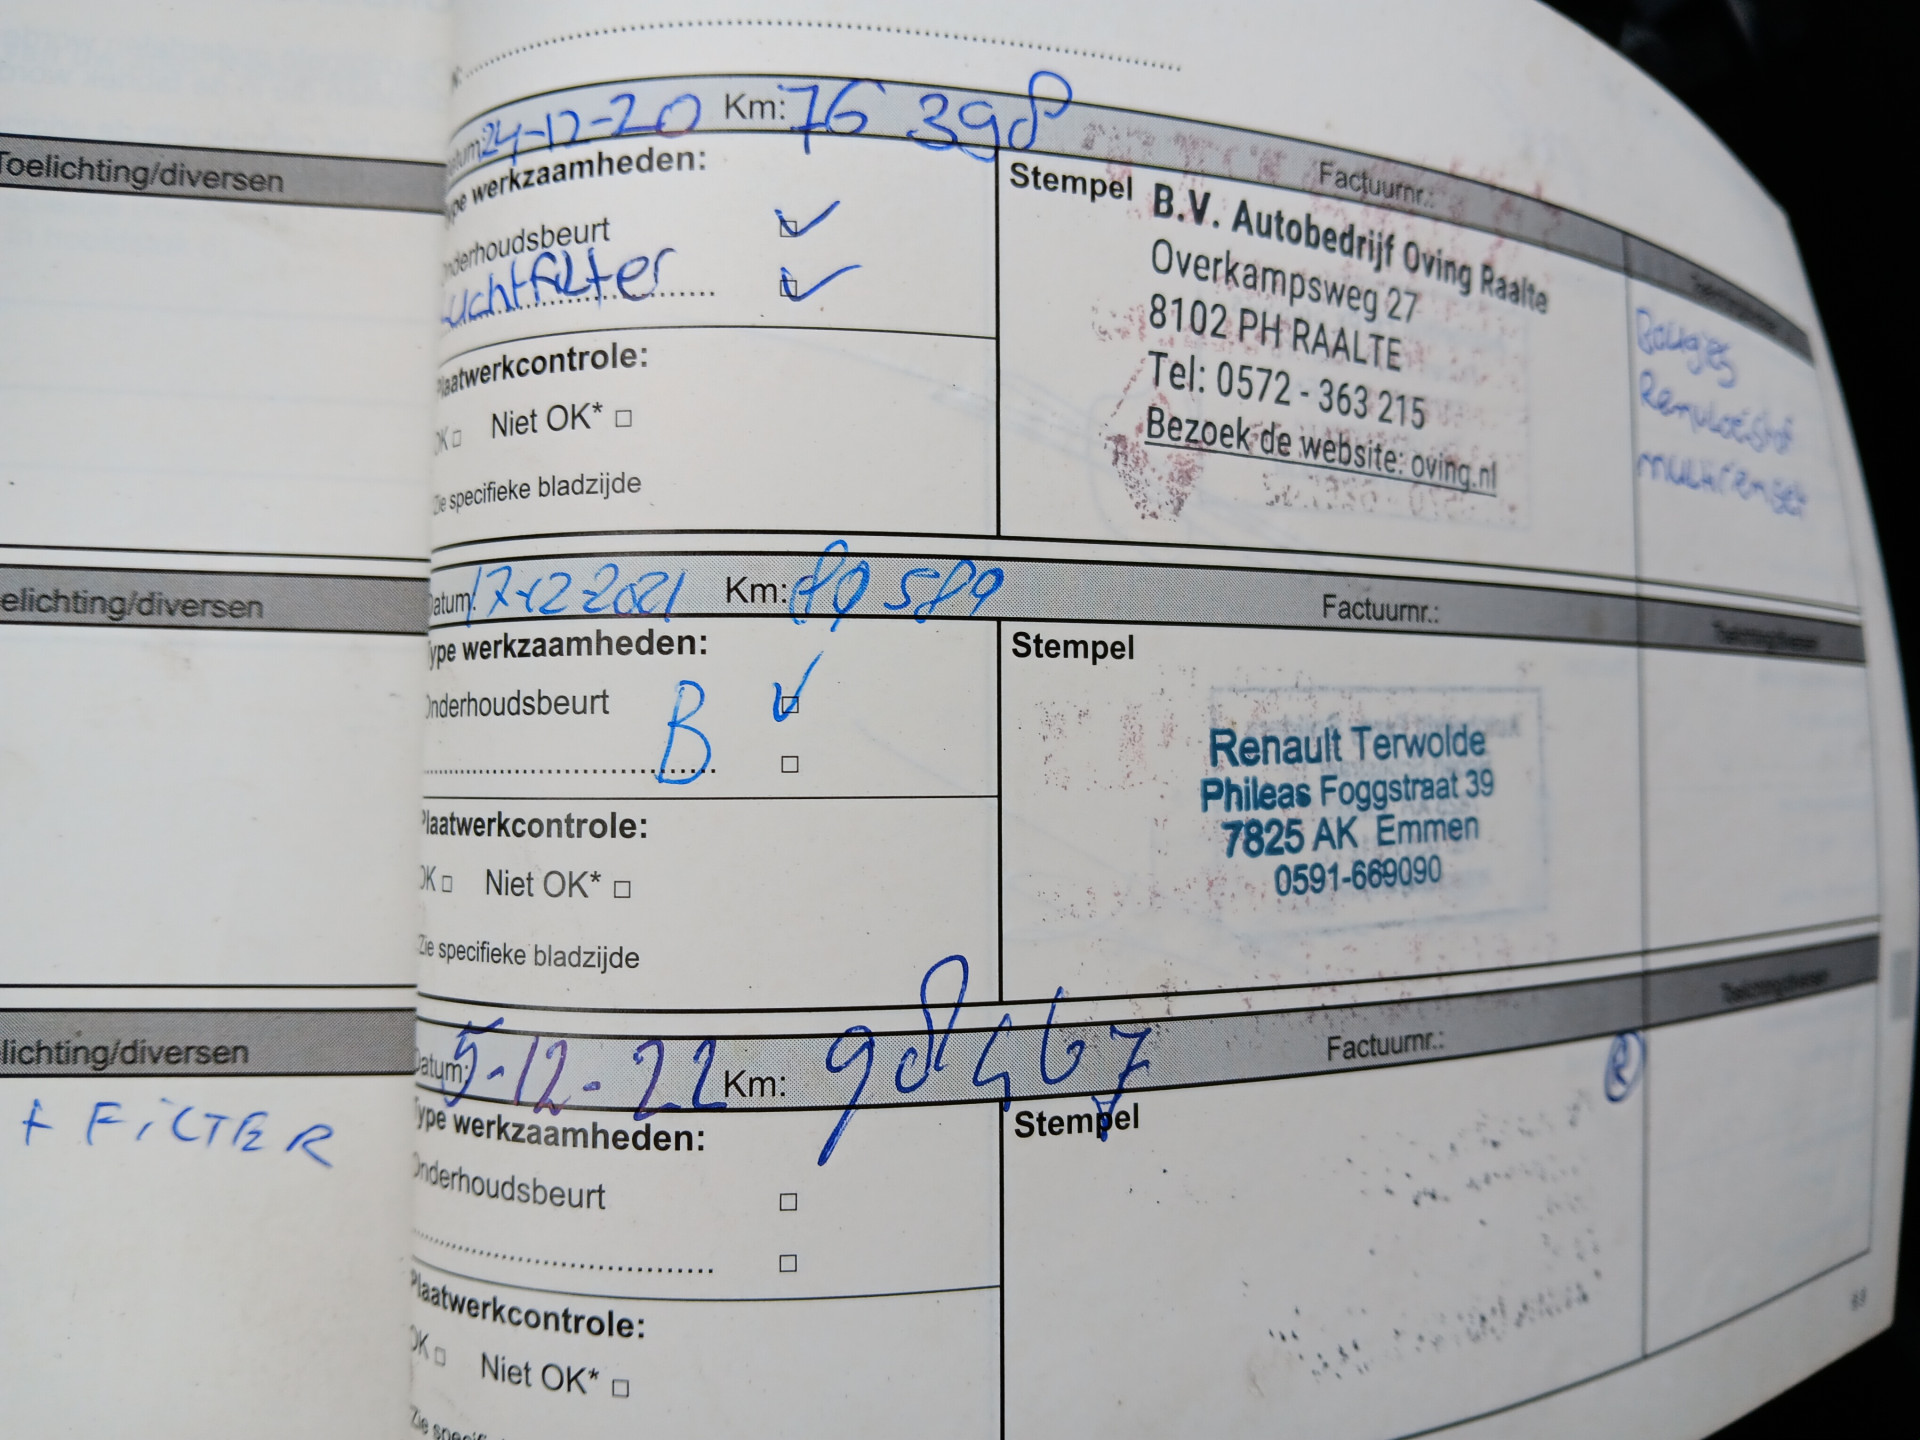 Toelichting/diversen
elichting/diversen
lichting/diversen
+ FILTER
atum: 24-12-20 Km: 76 398 Factuurnr.:
ype werkzaamheden:
nderhoudsbeurt
uchtfilter
Plaatwerkcontrole:
OK □ Niet OK* □
Zie specifieke bladzijde
Stempel
B.V. Autobedrijf Oving Raalte
Overkampsweg 27
8102 PH RAALTE
Tel: 0572 - 363 215
Bezoek de website: oving.nl
Bougies
Remvloeistof
multiremset
Datum: 17-12-2021 Km: 89 589 Factuurnr.:
Type werkzaamheden:
Onderhoudsbeurt B
Plaatwerkcontrole:
OK □ Niet OK* □
Zie specifieke bladzijde
Stempel
Renault Terwolde
Phileas Foggstraat 39
7825 AK Emmen
0591-669090
Datum: 5-12-22 Km: 98467 Factuurnr.:
Type werkzaamheden:
Onderhoudsbeurt
Plaatwerkcontrole:
OK □ Niet OK* □
Zie specif
Stempel